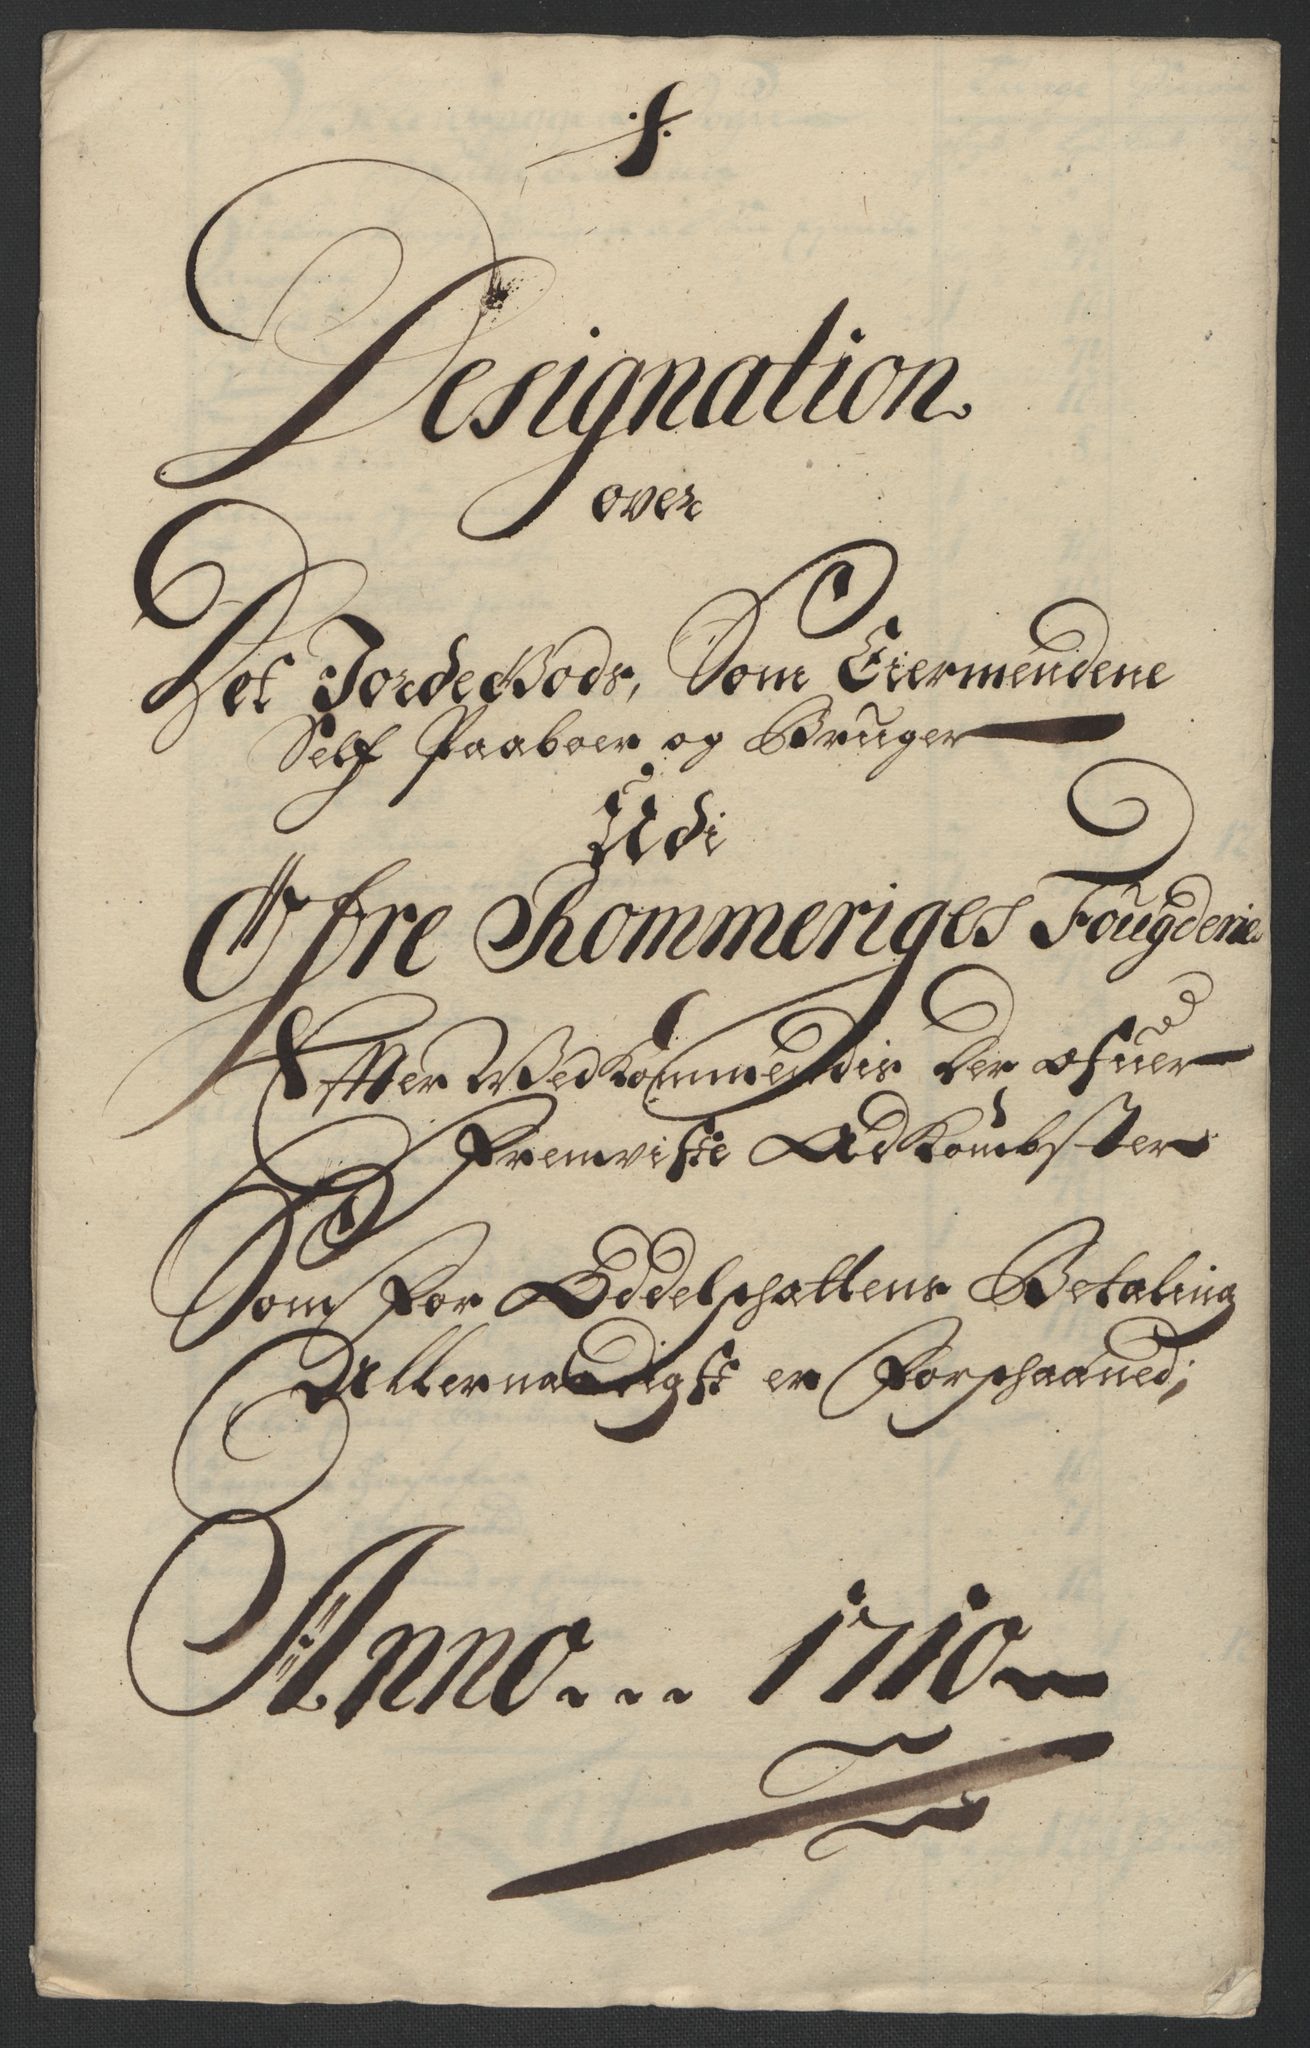 Designation
over
Det JordeGods, Som Eiermendene
Self Paaboer og Bruger
Udi
Øfre Rommeriges Fougderie
Effter Wedkommendis der ofuer
Fremviste Adkombster
Som for Oddelschattens Betaling
Allernaadigst er Forschaaned;
Anno... 1710